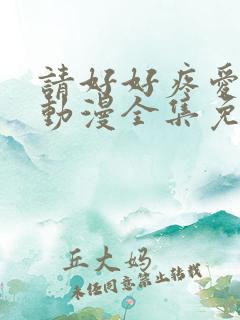 請好好疼愛
動漫全集免
丘大妈
未经同意禁止转载